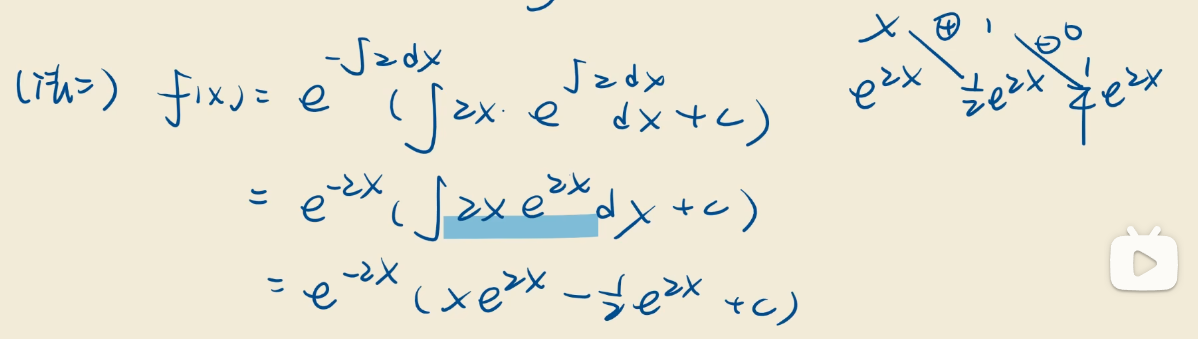 (法二) f(x) = e^{-∫2dx} (∫2x· e^{∫2dx} dx + c)
= e^{-2x} (∫2x e^{2x} dx + c)
= e^{-2x} (x e^{2x} - \frac{1}{2} e^{2x} + c)
x ⊕ 1 ⊖ 0
e^{2x} \frac{1}{2}e^{2x} \frac{1}{4}e^{2x}